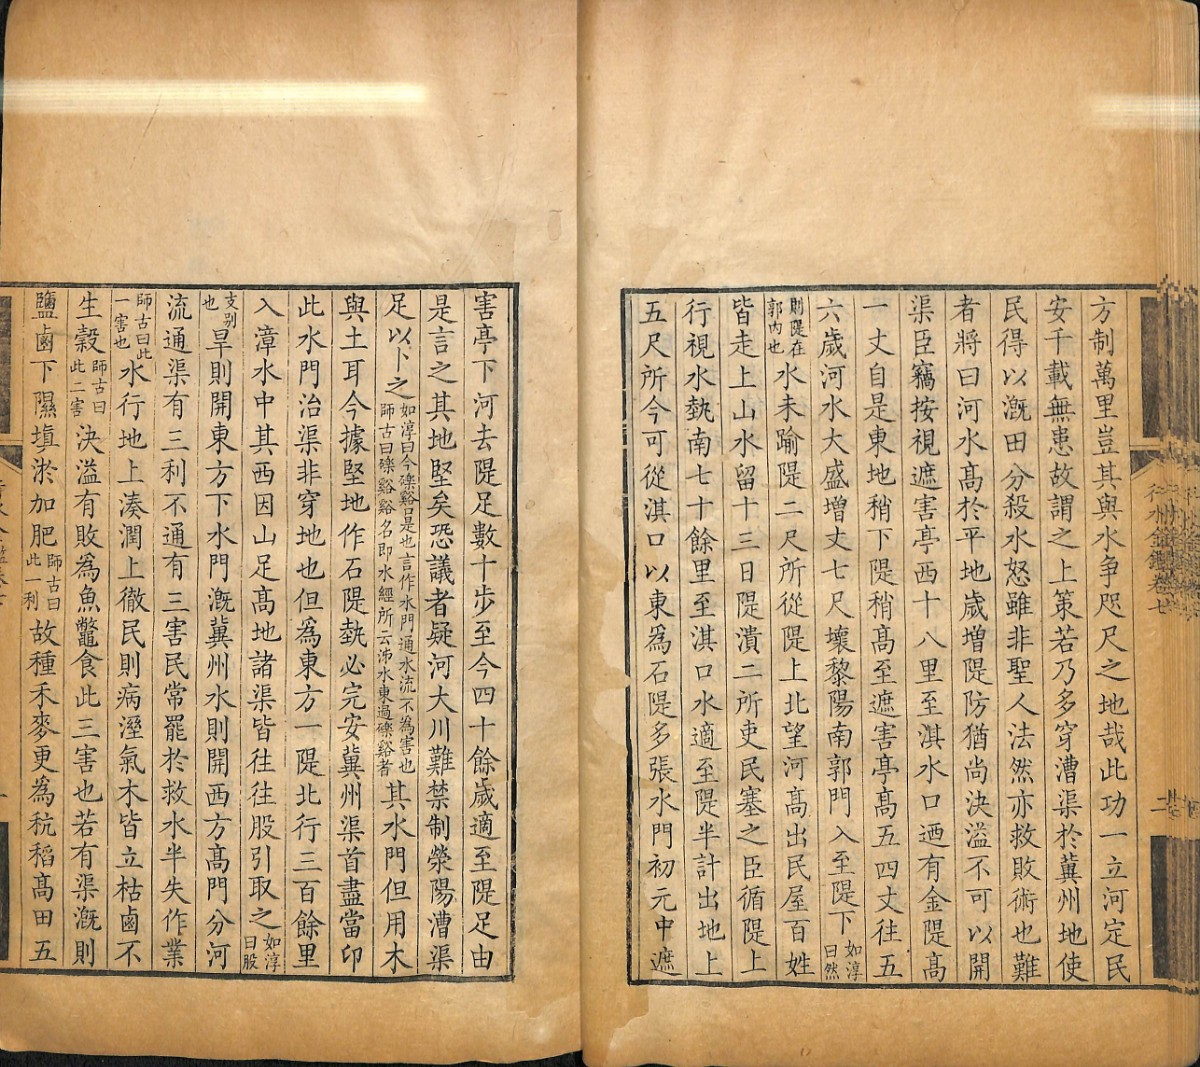 方制萬里豈其與水争咫尺之地哉此功一立河定民
安千載無患故謂之上策若乃多穿漕渠於冀州地使
民得以溉田分殺水怒雖非聖人法然亦救敗術也難
者將曰河水髙於平地歲增隄防猶尚決溢不可以開
渠臣竊按視遮害亭西十八里至淇水口迺有金隄髙
一丈自是東地稍下隄稍髙至遮害亭髙五四丈往五
六歲河水大盛增丈七尺壞黎陽南郭門入至隄下如淳曰然
則隄在郭内也水未踰隄二尺所從隄上北望河髙出民屋百姓
皆走上山水留十三日隄潰二所吏民塞之臣循隄上
行視水埶南七十餘里至淇口水適至隄半計出地上
五尺所今可從淇口以東爲石隄多張水門初元中遮
行水金鑑卷七
二
害亭下河去隄足數十步至今四十餘歲適至隄足由
是言之其地堅矣恐議者疑河大川難禁制滎陽漕渠
足以卜之如淳曰今礫谿口是也言作水門通水流不為害也師古曰礫谿谿名即水經所云泲水東過礫谿者其水門但用木
與土耳今據堅地作石隄埶必完安冀州渠首盡當卬
此水門治渠非穿地也但爲東方一隄北行三百餘里
入漳水中其西因山足髙地諸渠皆往往股引取之如淳曰股
支别也旱則開東方下水門溉冀州水則開西方髙門分河
流通渠有三利不通有三害民常罷於救水半失作業
師古曰此一害也水行地上湊潤上徹民則病溼氣木皆立枯鹵不
生穀師古曰此二害決溢有敗爲魚鼈食此三害也若有渠溉則
鹽鹵下隰塡淤加肥師古曰此一利故種禾麥更爲秔稻髙田五